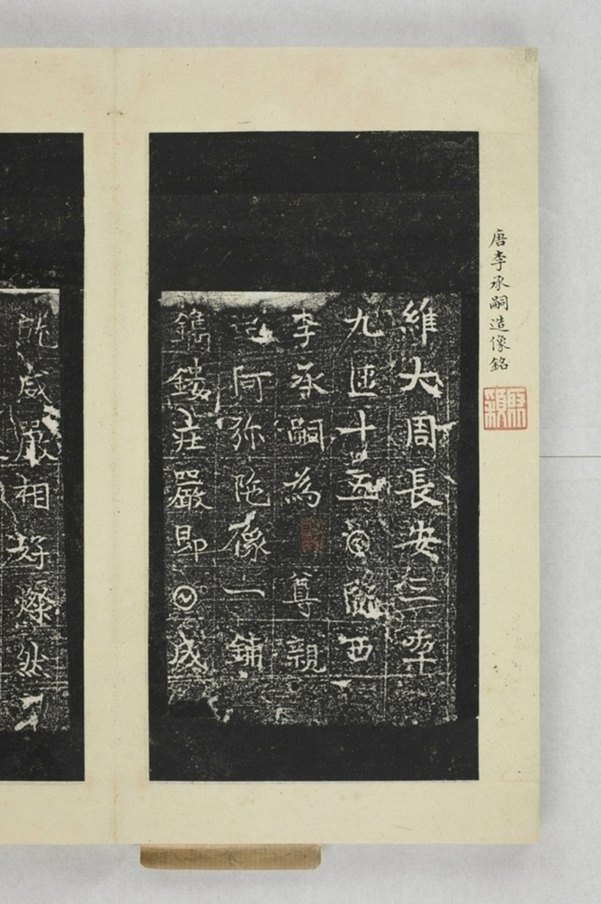 唐李承嗣造像銘
維大周長安三𠡦
九𠥱十五𡆠隴西
李承嗣為尊親
造阿弥陁像一鋪
鐫鏤莊嚴即𡆠成
就威嚴相好燦然